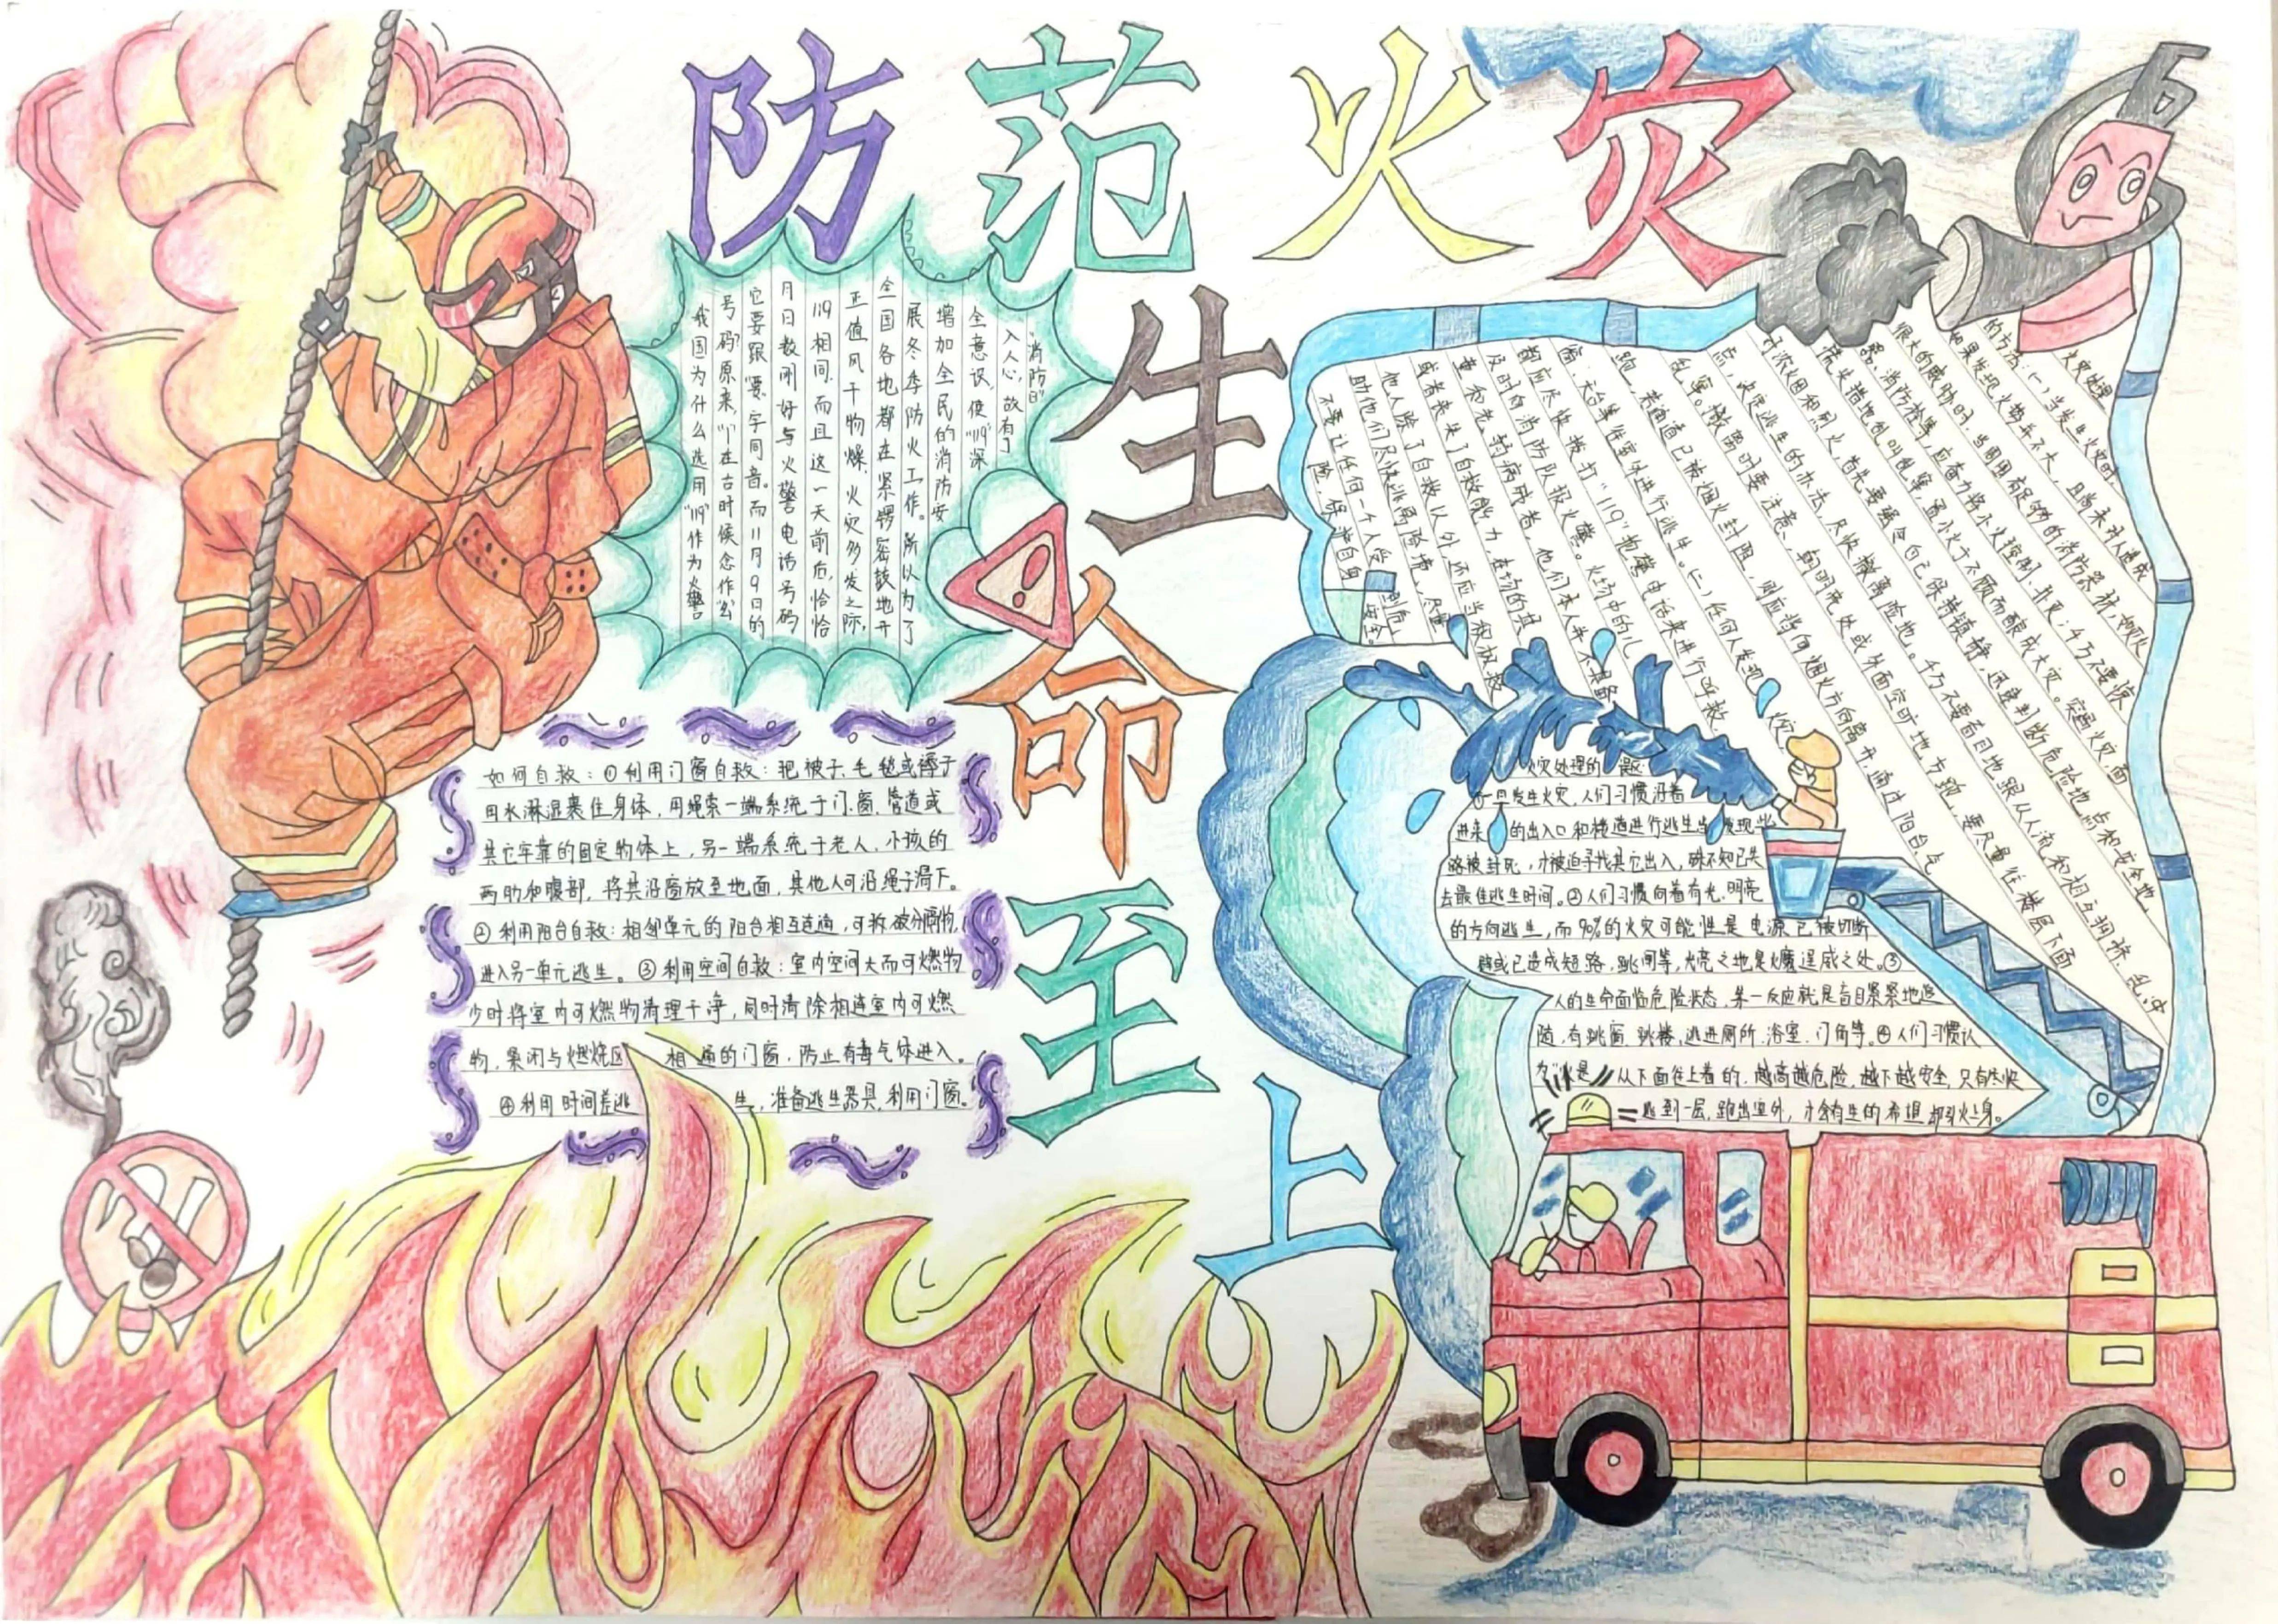 防范火灾
生命至上
我国为什么选用“119”作为火警
号码?原来,“1”在古时候念作“幺”
它要跟“要”字同音。而11月9日的
月日数刚好与火警电话号码
119相同,而且这一天前后,恰恰
正值风干物燥、火灾多发之际,
全国各地都在紧锣密鼓地开
展冬季防火工作。所以为了
增加全民的消防安
全意识,使“119”深
入人心,故有了
“消防日”
如何自救:①利用门窗自救:把被子、毛毯或褥子
用水淋湿裹住身体,用绳索一端系统于门、窗、管道或
其它牢靠的固定物体上,另一端系统于老人、小孩的
两肋和腹部,将其沿窗放至地面,其他人可沿绳子滑下。
②利用阳台自救:相邻单元的阳台相互连通,可拆破分隔物,
进入另一单元逃生。③利用空间自救:室内空间大而可燃物
少时将室内可燃物清理干净,同时清除相连室内可燃
物,紧闭与燃烧区相通的门窗,防止有毒气体进入。
④利用时间差逃生,准备逃生器具,利用门窗。
火灾处理
的方法:(一)当发生火灾时,
如果发现火势并不大,且尚未对人造成
很大的威胁时,当周围有足够的消防器材,如灭火
器、消防栓等,应奋力将小火控制、扑灭;千万不要惊
慌失措地乱叫乱窜,置小火于不顾而酿成大灾。突遇火灾,面
对浓烟和烈火,首先要强令自己保持镇静,迅速判断危险地点和安全地
点,决定逃生的办法,尽快撤离险地。千万不要盲目地跟从人流和相互拥挤、乱冲
乱窜。撤离时要注意,朝明亮处或外面空旷地方跑,要尽量往楼层下面
跑,若通道已被烟火封阻,则应背向烟火方向离开,通过阳台、气
窗、天台等往室外进行逃生。(二)任何人发现火灾,
都应尽快拨打“119”火警电话来进行呼救,
及时向消防队报火警。火场中的儿
童和老弱病残者,他们本人并不具备
或者丧失了自救能力,在场的其
他人除了自救以外还应当积极救
助他们尽快逃离险境,尽量
不要让任何一个人受到危
险,保护自身安全。
火灾处理的误区:
①一旦发生火灾,人们习惯沿着
进来的出入口和楼道进行逃生当发现此
路被封死,才被迫寻找其它出入,殊不知已失
去最佳逃生时间。②人们习惯向着有光、明亮
的方向逃生,而90%的火灾可能性是电源已被切断
或已造成短路、跳闸等,光亮之地是火魔逞威之处。③
人的生命面临危险状态,第一反应就是盲目紧紧地追
随,有跳窗、跳楼,逃进厕所、浴室、门角等。④人们习惯认
为“火是从下面往上着的,越高越危险,越下越安全,只有尽快
逃到一层,跑出室外,才会有生的希望,却引火上身。